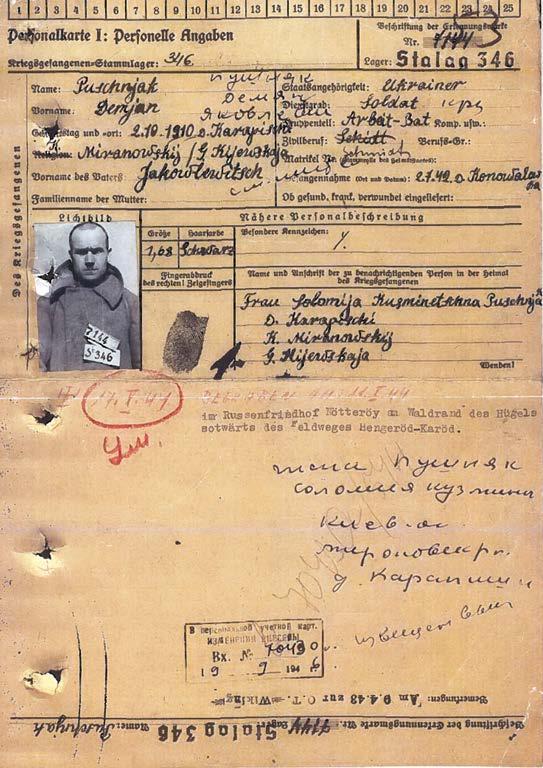 1 2 3 4 5 6 7 8 9 10 11 12 13 14 15 16 17 18 19 20 21 22 23 24 25
Personalkarte I: Personelle Angaben
Beschriftung der Erkennungsmarke
Nr. 7144
Kriegsgefangenen=Stammlager: 346
Lager: Stalag 346
Des Kriegsgefangenen
Name: Puschnjak Пушняк
Staatsangehörigkeit: Ukrainer
Vorname: Demjan Демян
Dienstgrad: Soldat
Яковлевич
Truppenteil: Arbeit-Bat Komp. usw.:
Geburtstag und =ort: 2.10.1910 D. Karapischi
Zivilberuf: Berufs-Gr.:
Religion: K. Miranowskij / G. Kijewskaja
Matrikel Nr.
Vorname des Vaters: Jakowlewitsch
Gefangennahme (Ort und Datum): 2.7.42
Familienname der Mutter:
Ob gesund, krank, verwundet eingeliefert:
Lichtbild
Nähere Personalbeschreibung
Größe Haarfarbe Besondere Kennzeichen:
1,68 Schwarz
Fingerabdruck des rechten! Zeigefingers
Name und Anschrift der zu benachrichtigenden Person in der Heimat des Kriegsgefangenen
7144
S 346
Frau Solomija Kusminitschna Puschnjak
D. Karapischi
K. Miranowskij
G. Kijewskaja
Wenden!
17.I.44
im Russenfriedhof Nötteröy am Waldrand des Hügels
ostwärts des Feldweges Hengeröd-Karöd.
жена Пушняк
Соломия Кузмини
Киев
д. Карапиши
извещен
В персональной учетной карт.
ИЗМЕНЕНИЯ ВНЕСЕНЫ
Вх. №
19 9 1946
Bemerkungen: Am 9.4.43 zur O.T. Wiking
Beschriftung der Erkennungsmarke Nr. 7144 Lager: Stalag 346 Name: Puschnjak